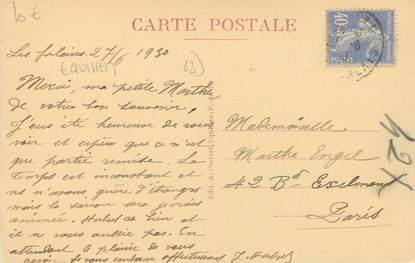 10 €
CARTE POSTALE
Les falaises, 27/6 1930
EQUIHEN
62)
Merci, ma petite Marthe
de votre bon souvenir,
J'ai été heureuse de vous
voir et espère que ce n'est
que partie remise. Le
temps est inconstant et
ns n'avons guère d'étrangers
mais la saison sera
animée. Hubert va bien et
il ne vous oublie pas. En
attendant le plaisir de vous
revoir, je vous embrasse affectueusement
Mademoiselle
Marthe Engel
42 Bd Exelmans
Paris